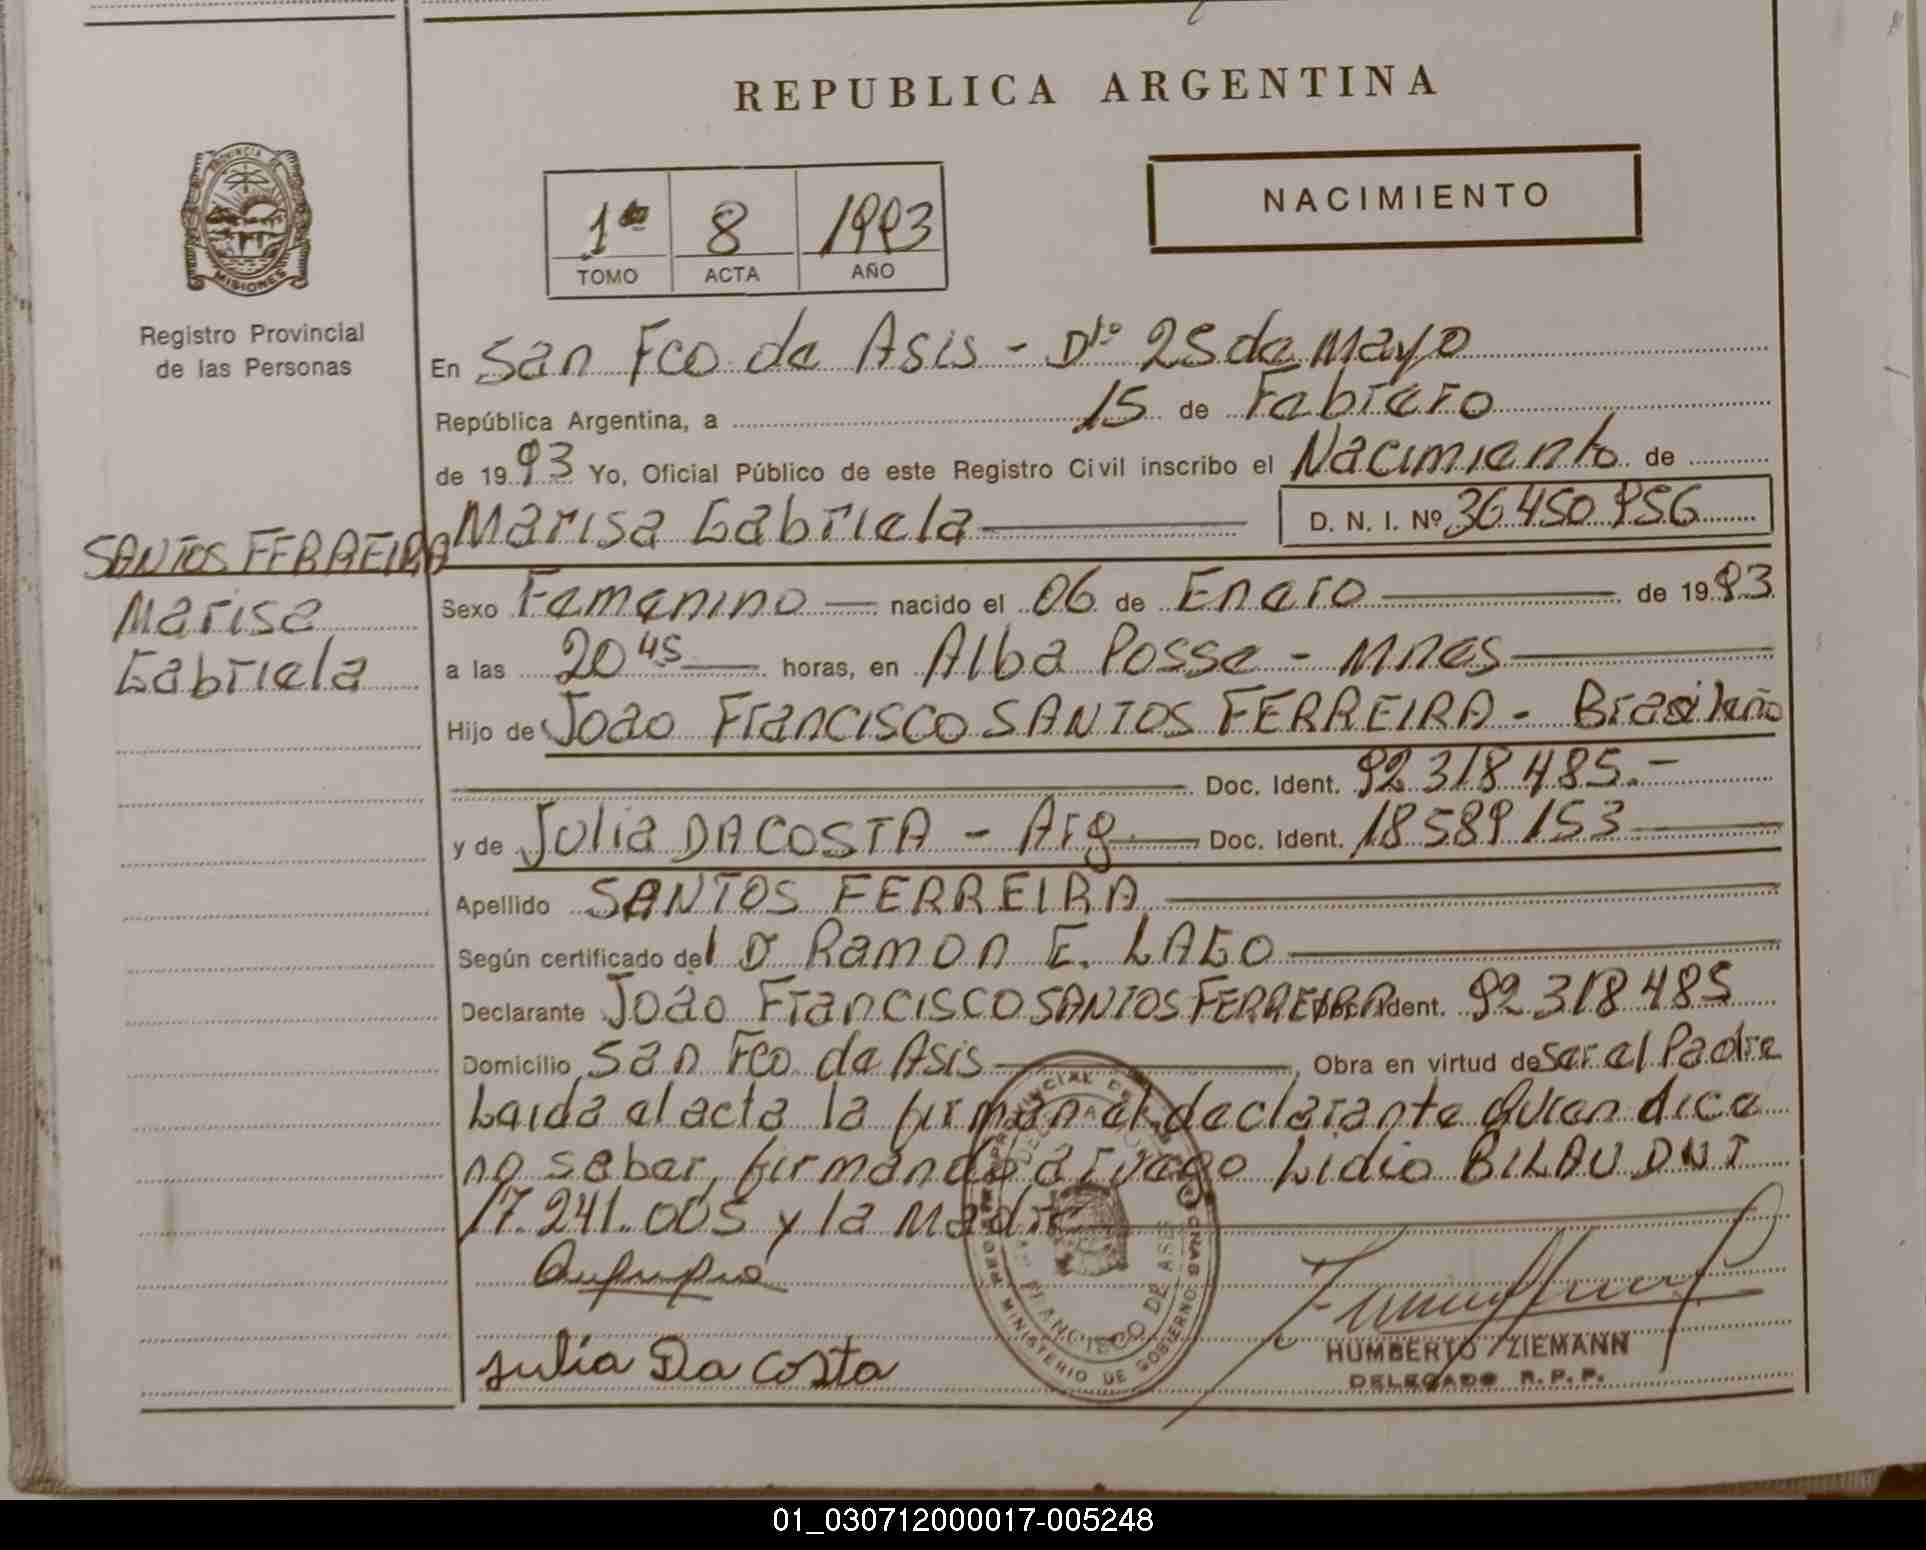 REPUBLICA ARGENTINA
PROVINCIA DE
MISIONES
Registro Provincial
de las Personas
1ro 8 1993
TOMO ACTA AÑO
NACIMIENTO
En San Fco de Asis - Dto 25 de Mayo
República Argentina, a 15 de Febrero
de 1993 Yo, Oficial Público de este Registro Civil inscribo el Nacimiento de
Marisa Gabriela D. N. I. Nº 36450956
SANTOS FERREIRA
Marisa
Gabriela
Sexo Femenino nacido el 06 de Enero de 1993
a las 20 45 horas, en Alba Posse - Mnes
Hijo de Joao Francisco SANTOS FERREIRA - Brasileño
Doc. Ident. 92.318.485.-
y de Julia DA COSTA - Arg. Doc. Ident. 18.589.153
Apellido SANTOS FERREIRA
Según certificado del D Ramon E. LAGO
Declarante Joao Francisco SANTOS FERREIRA Doc. Ident. 92.318.485
Domicilio San Fco de Asis, Obra en virtud de Ser el Padre
Leida el acta la firman el declarante quien dice
no saber, firmando a ruego Lidio BILAU DNI
17.241.005 y la Madre
REGISTRO PROVINCIAL DE LAS PERSONAS
MINISTERIO DE GOBIERNO
FRANCISCO DE ASIS
Julia Da Costa
HUMBERTO ZIEMANN
DELEGADO R.P.P.
01_030712000017-005248